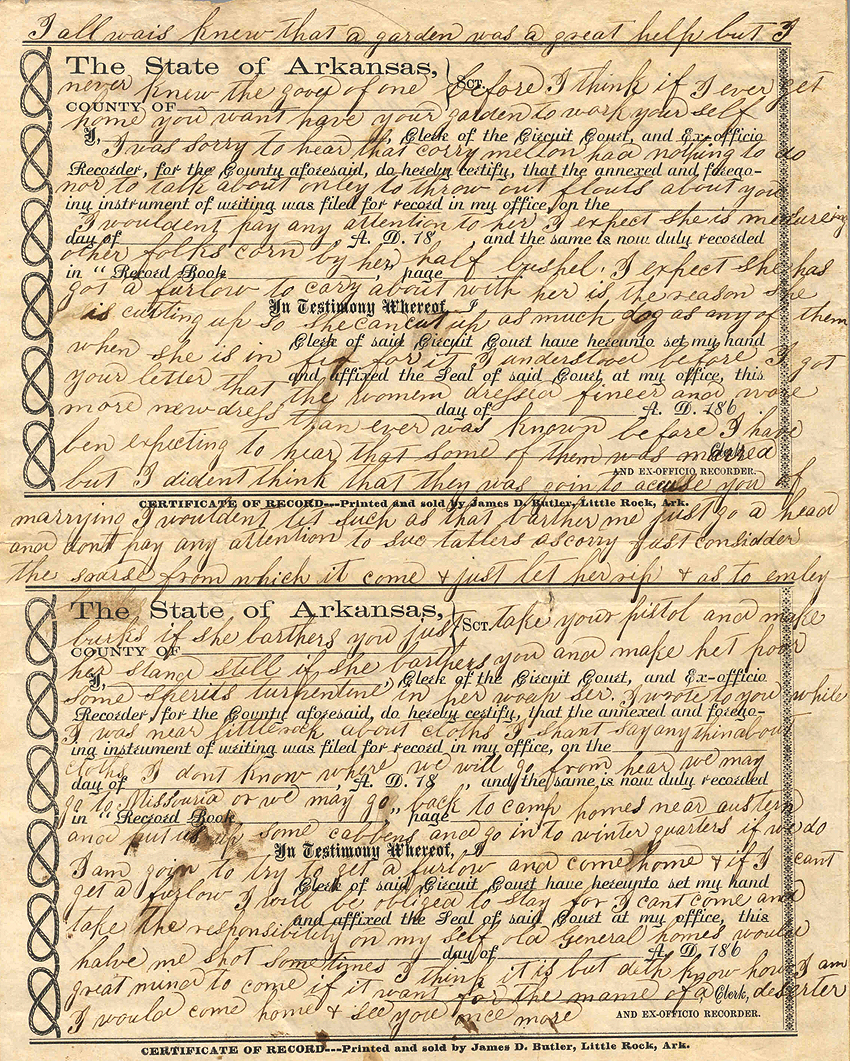 I all wais knew that a garden was a great help but I
The State of Arkansas,
never knew the good of one before I think if I ever get
Sct.
COUNTY OF
home you want have your garden to work your self
I, , Clerk of the Circuit Court, and Ex-officio
I was sorry to hear that corry melton had nothing to do
Recorder, for the County aforesaid, do hereby certify, that the annexed and forego-
nor to talk about onley to throw out flouts about you
ing instrument of writing was filed for record in my office, on the
I wouldent pay any attention to her I expect she is measureing
day of , A. D. 18 , and the same is now duly recorded
other folks corn by her half bushel. I expect she has
in "Record Book page
got a furlow to cary about with her is the reason she
In Testimony Whereof, I
is cutting up so she can cut up as much dog as any of them
Clerk of said Circuit Court have hereunto set my hand
when she is in for it I understood before I got
and affixed the Seal of said Court, at my office, this
your letter that the women dressed fineer and wore
day of A. D. 186 .
more new dress than ever was known before I have
ben expecting to hear that some of them was married
Clerk,
AND EX-OFFICIO RECORDER.
but I dident think that they was goin to acuse you of
CERTIFICATE OF RECORD---Printed and sold by James D. Butler, Little Rock, Ark.
marrying I wouldent let such as that barther me just go a head
and dont pay any attention to suc tatlers as corry just considder
the soarse from which it come & just let her rip & as to emley
The State of Arkansas,
Sct.
burks if she barthers you just take your pistol and make
COUNTY OF
her stand still if she barthers you and make het poor
I, , Clerk of the Circuit Court, and Ex-officio
some sperits turpentine in her I wrote to you while
Recorder, for the County aforesaid, do hereby certify, that the annexed and forego-
I was near littlerock about cloths I shant say any thin about
ing instrument of writing was filed for record in my office, on the
cloths I dont know where we will go from hear we may
day of , A. D. 18 , and the same is now duly recorded
go to Missouria or we may go back to camp homes near austern
in "Record Book " page
and put us up some cabbens and go in to winter quarters if we do
In Testimony Whereof, I
I am goin to try to get a furlow and come home & if I cant
Clerk of said Circuit Court have hereunto set my hand
get a furlow I will be obliged to stay for I cant come and
and affixed the Seal of said Court at my office, this
take the responsibility on my self old General homes would
day of A. D. 186
halve me shot some times I think it is but know how I am
great mind to come if it want for the mame of a deserter
Clerk,
I would come home & see you once more
AND EX-OFFICIO RECORDER.
CERTIFICATE OF RECORD---Printed and sold by James D. Butler, Little Rock, Ark.